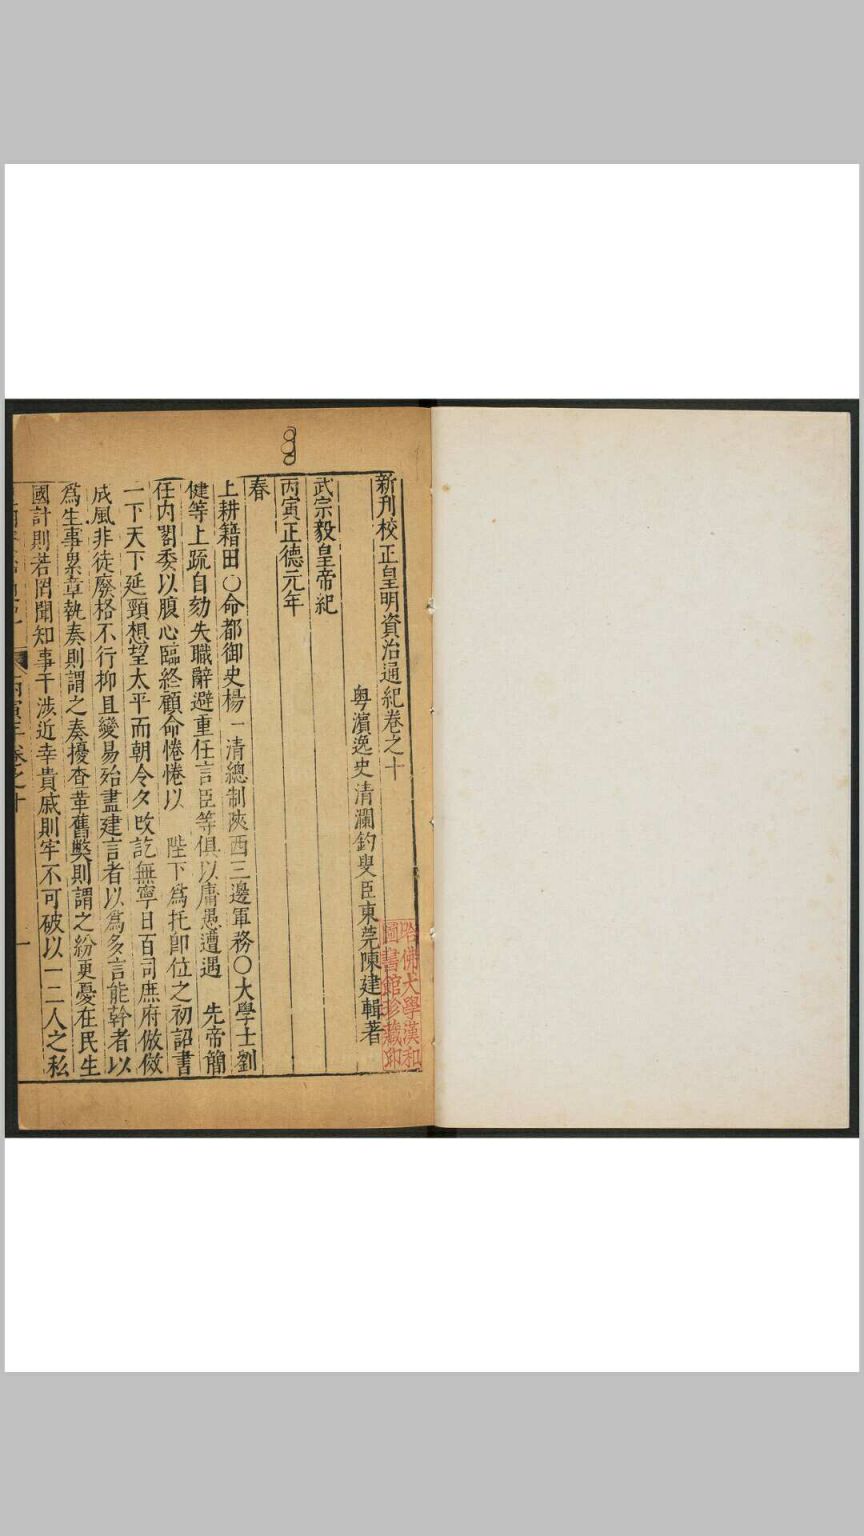 新刋校正皇明資治通紀卷之十
粤濱逸史清瀾釣叟臣東莞陳建輯著
武宗毅皇帝紀
丙寅正德元年
春
上耕籍田○命都御史楊一清總制陝西三邊軍務○大學士劉
健等上疏自劾失職辭避重任言臣等俱以庸愚遭遇　先帝簡
任内閣委以腹心臨終顧命惓惓以　陛下爲托卽位之初詔書
一下天下延頸想望太平而朝令夕改訖無寧日百司庶府倣傚
成風非徒廢格不行抑且變易殆盡建言者以爲多言能幹者以
爲生事累章執奏則謂之奏擾查革舊獘則謂之紛更憂在民生
國計則若罔聞知事干涉近幸貴戚則牢不可破以一二人之私
丙寅年卷之十
一
哈佛大學漢和
圖書館珍藏印